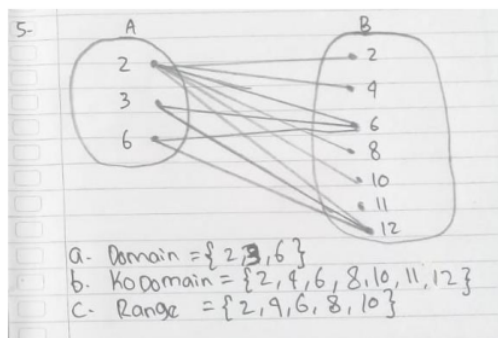 5-
A B
2 2
3 4
6 6
8
10
11
12
a. Domain = {2,3,6}
b. Kodomain = {2,4,6,8,10,11,12}
c. Range = {2,4,6,8,10}